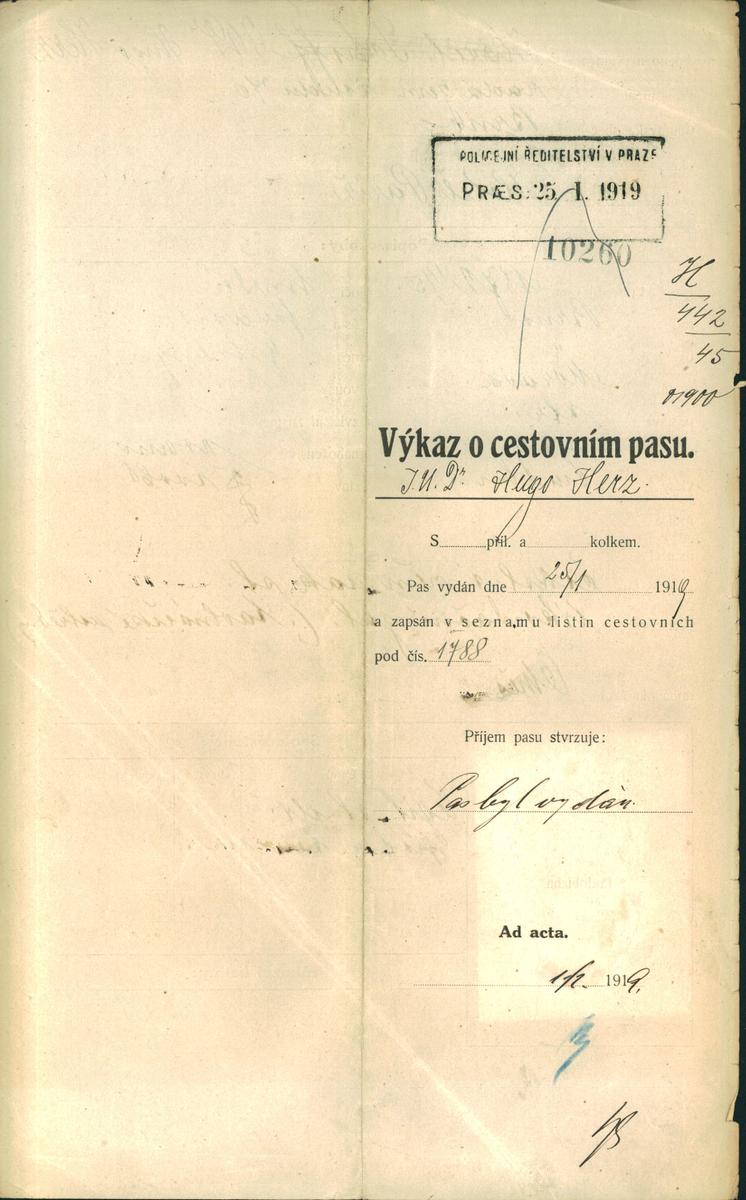 POLICEJNÍ ŘEDITELSTVÍ V PRAZE
PRÆS. 25 I. 1919
10260
H
442
45
01900
Výkaz o cestovním pasu.
J.U.Dr. Hugo Herz.
S příl. a kolkem.
Pas vydán dne 25/1 1919
a zapsán v seznamu listin cestovních
pod čís. 1788
Příjem pasu stvrzuje:
Pas byl vydán.
Ad acta.
1/2. 1919.